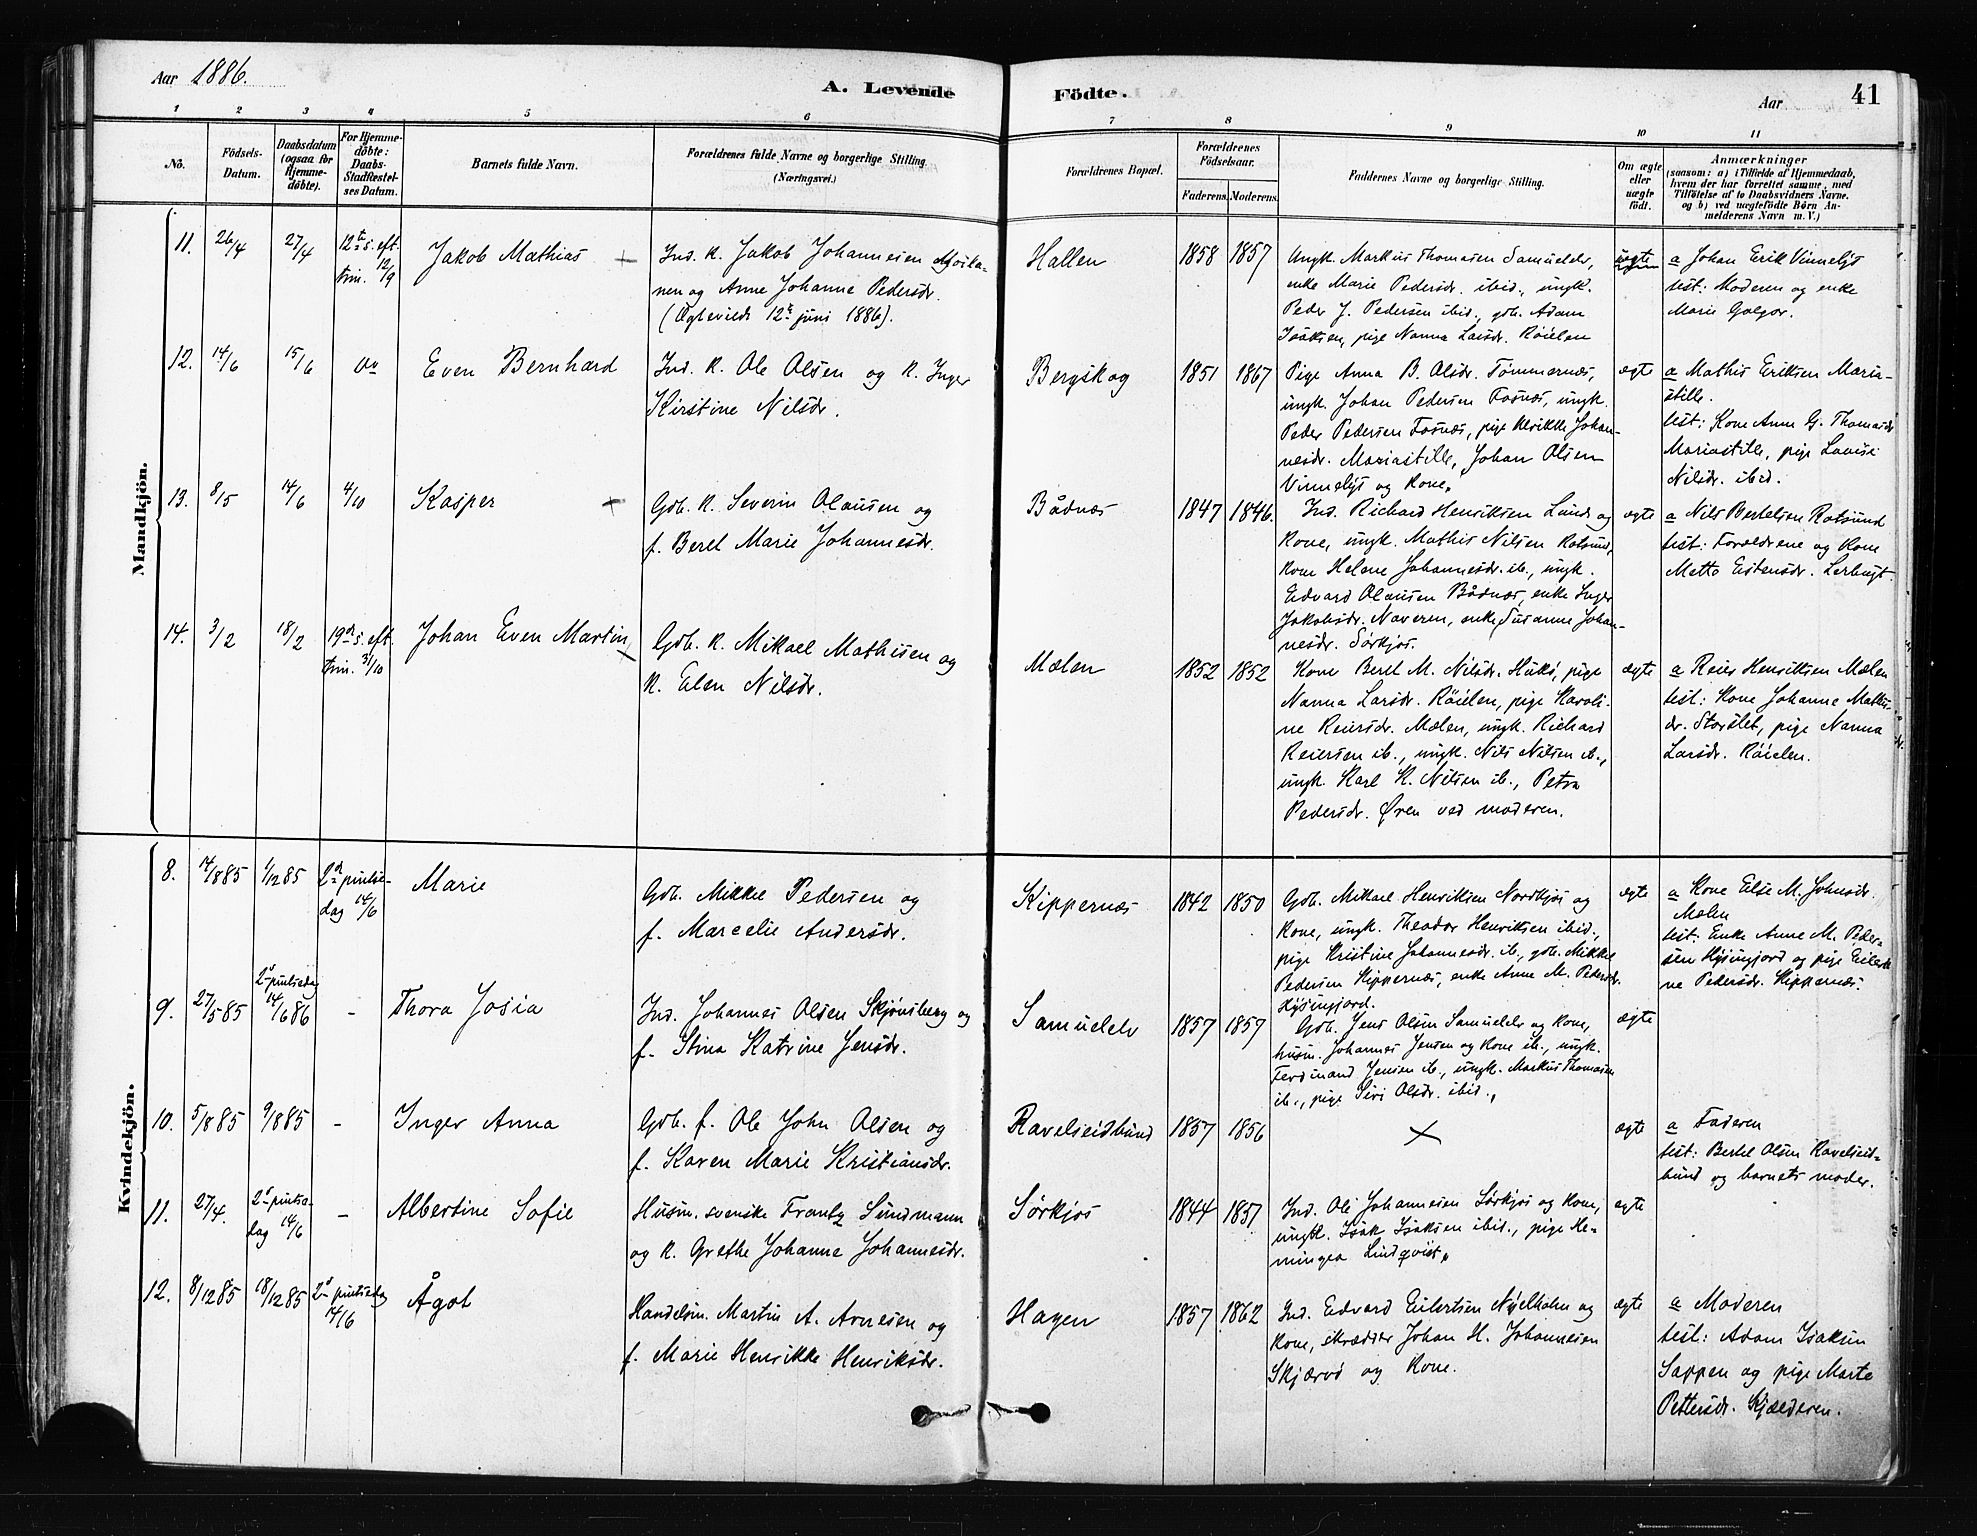 Aar 1886.
A. Levende Födte.
Aar
41
1 2 3 4 5 6 7 8 9 10 11
No.
Födsels-Datum.
Daabsdatum (ogsaa for Hjemmedöbte).
For Hjemmedöbte: Daabs-Stadfæstelses Datum.
Barnets fulde Navn.
Forældrenes fulde Navne og borgerlige Stilling (Næringsvei.)
Forældrenes Bopæl.
Forældrenes Födselsaar.
Faderens. Moderens.
Faddernes Navne og borgerlige Stilling.
Om ægte eller uægte födt.
Anmærkninger
(saasom: a) i Tilfælde af Hjemmedaab,
hvem der har forrettet samme, med
Tilföielse af to Daabsvidners Navne.
og b) ved uægtefödte Börn An-
melderens Navn m. V.)
Mandkjön.
11. 26/4 27/4 12te s. eft. trin. 12/9
Jakob Mathias +
Ind. K. Jakob Johannesen
nen og Anne Johanne Pedersdr.
(Ægteviede 12te juni 1886).
Hallen 1858 1857
Ungk. Markus Thomasen Samuelelv,
enke Marie Pedersdr. ibid., ungk.
Peder J. Pedersen ibid., gdb. Adam
Isaksen, pige Nanna Larsdr. Röielen
uægte
a Johan Erik Vinnelys
test: Moderen og enke
Marie Galgor.
12. 14/6 15/6
Even Bernhard
Ind. K. Ole Olsen og K. Inger
Kirstine Nilsdr.
Bergskog 1851 1867
Pige Anna B. Olsdr. Tömmernes,
ungk. Johan Pedersen Fosnæs, ungk.
Peder Pedersen Fosnæs, pige Ulrikke Johan-
nesdr. Mariastille, Johan Olsen
Vinnelys og Kone.
ægte
a Mathis Eriksen Maria-
stille.
test: Kone Anne G. Thomasdr
Mariastille, pige Lovise
Nilsdr. ibid.
13. 8/5 14/6 4/10
Kasper +
Gdb. K. Severin Olausen og
f. Beret Marie Johannesdr.
Bådnæs 1847 1846.
Ind. Richard Henriksen Lund og
Kone, ungk. Mathis Nilsen Rotsund,
Kone Helene Johannesdr. ib., ungk.
Edvard Olausen Bådnæs, enke Inger
Jakobsdr. Naveren, enke Susanne Johan-
nesdr. Sørkjos.
ægte
a Nils Bertelsen Rotsund
test: Forældrene og Kone
Mette Estensdr. Lerbugt.
14. 3/2 18/2 19de s. eft. trin. 31/10
Johan Even Martin +
Gdb. K. Mikael Mathisen og
K. Elen Nilsdr.
Mælen 1852 1852
Kone Beret M. Nilsdr. Hukö, pige
Nanna Larsdr. Röielen, pige Karoli-
ne Reiersdr. Mælen, ungk. Richard
Reiersen ib., ungk. Nils Nilsen ib.,
ungk. Karl K. Nilsen ib., Petra
Pedersdr. Øren ved moderen.
ægte
a Reier Henriksen Mælen
test: Kone Johanne Mathis-
dr. Storslet, pige Nanna
Larsdr. Röielen.
Kvindekjön.
8. 14/8 85 1/12 85 2den pintse-dag 14/6
Marie
Gdb. Mikkel Pedersen og
f. Marcelie Andersdr.
Kippernæs 1842 1850
Gdb. Mikael Henriksen Nordkjos og
Kone, ungk. Theodor Henriksen ibid.,
pige Kristine Johannesdr. ib., gdb. Mikkel
Pedersen Kippernæs, enke Anne M. Pedersdr.
ægte
a Kone Else M. Johnsdr.
Mælen
test: Enke Anne M. Peder-
ne Pedersdr. Kippernæs.
9. 27/5 85 2d pintsedag 14/6 86 -
Thora Josia
Ind. Johannes Olsen Skjönsberg og
f. Stina Katrine Jensdr.
Samuelelv 1857 1859
Gdb. Jens Olsen Samuelelv og Kone,
husm. Johannes Jensen og Kone ib., ungk.
Ferdinand Jensen ib., ungk. Markus Thomasen
ib., pige Siri Olsdr. ibid.,
ægte
10. 5/8 85 9/8 85 -
Inger Anna
Gdb. f. Ole John Olsen og
f. Karen Marie Kristiansdr.
Ravelseidbund 1857 1856
×
ægte
a Faderen
test: Bertel Olsen Ravelseid-
bund og barnets moder.
11. 27/4. 2d pintse-dag 14/6 -
Albertine Sofie
Husm. svenske Frantz Sundmann
og K. Grethe Johanna Johannesdr.
Sörkjos 1844 1851
Ind. Ole Johannesen Sörkjos og Kone,
ungk. Isak Isaksen ibid., pige He-
ningea Lindqvist,
ægte
12. 8/12 85 18/12 85 2d pintsedag 14/6
Ågot
Handelsm. Martin A. Arnesen og
f. Marie Henrikke Henriksdr.
Hagen 1857 1862
Ind. Edvard Eilertsen Nyelholm og
Kone, skrædder Johan H. Johannesen
Skjærvö og Kone.
ægte
a Moderen
test: Adam Isaksen
Sappen og pige Marte
Pettersdr. Kjælderen.